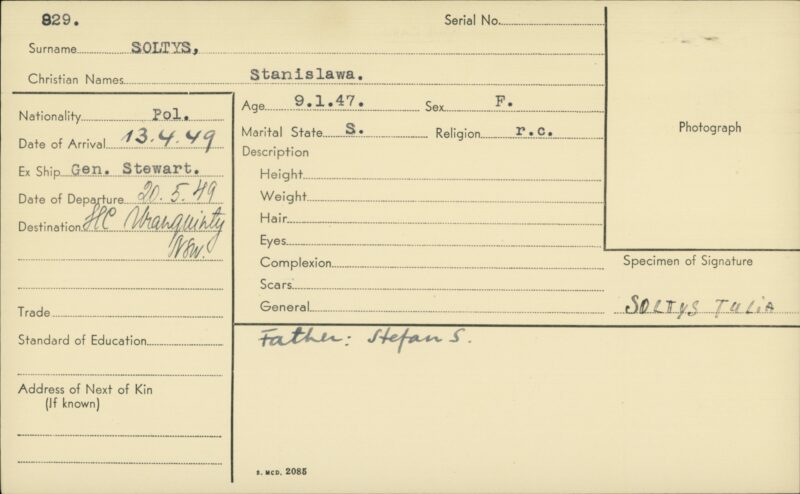 829.
Serial No.
Surname SOLTYS,
Christian Names Stanislawa.
Nationality Pol.
Date of Arrival 13.4.49
Ex Ship Gen. Stewart.
Date of Departure 20.5.49
Destination HC Uranquinty
NSW.
Trade
Standard of Education
Address of Next of Kin
(If known)
Age 9.1.47. Sex F.
Marital State S. Religion r.c.
Description
Height
Weight
Hair
Eyes
Complexion
Scars
General
Photograph
Specimen of Signature
SOLTYS TULIA
Father: Stefan S.
S. MCD. 2085